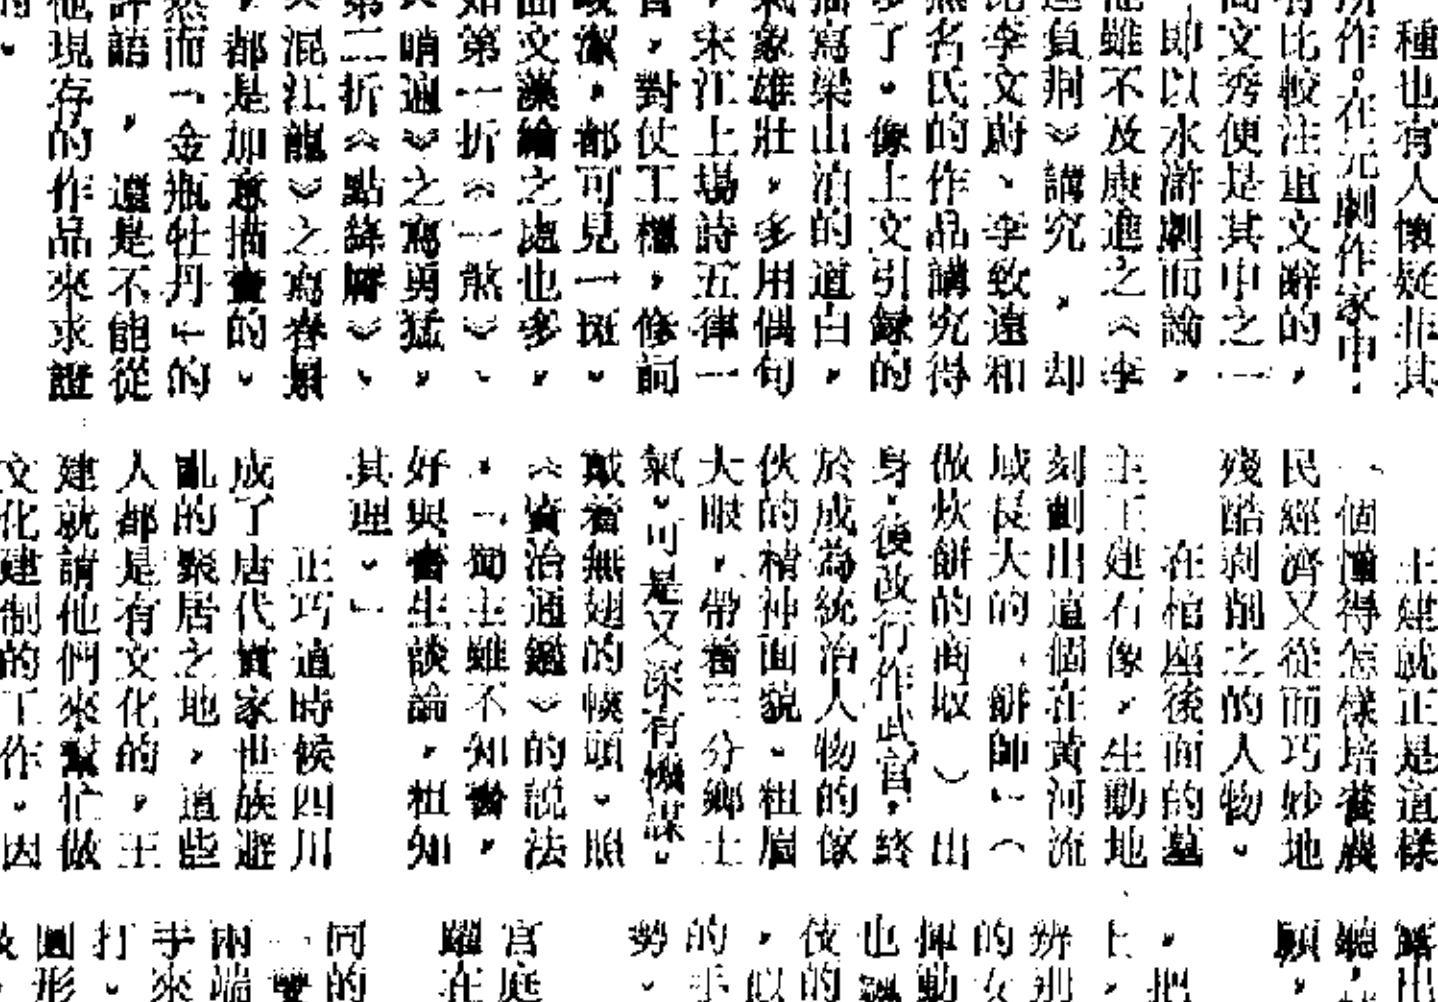 種也有人懷疑非其
所作。在元劇作家中，
有比較注重文辭的，
高文秀便是其中之一
，即以水滸劇而論，
他雖不及康進之《李
逵負荆》講究，却
比李文蔚、李致遠和
無名氏的作品講究得
多了。像上文引錄的
描寫梁山泊的道白，
氣象雄壯，多用偶句
，宋江上場詩五律一
首，對仗工穩，修詞
峻潔，都可見一斑。
曲文藻繪之處也多，
如第一折《一煞》、
《哨遍》之寫勇猛，
第二折《點絳脣》、
《混江龍》之寫春景
，都是加意描畫的。
然而「金瓶牡丹」的
評語，還是不能從
他現存的作品來求證
的。
王建就正是這樣
一個懂得怎樣培養農
民經濟又從而巧妙地
殘酷剥削之的人物。
在棺座後面的墓
主王建石像，生動地
刻劃出這個在黃河流
域長大的，餅師（
做炊餅的商販）出
身，後改行作武官，終
於成為統治人物的傢
伙的精神面貌。粗眉
大眼，帶着三分鄉土
氣。可是又深有機謀。
戴着無翅的幞頭。照
《資治通鑑》的說法
，「蜀主雖不知書，
好與書生談論，粗知
其理。」
正巧這時候四川
成了唐代實家世族避
亂的聚居之地，這些
人都是有文化的，王
建就請他們來幫忙做
文化建制的工作。因